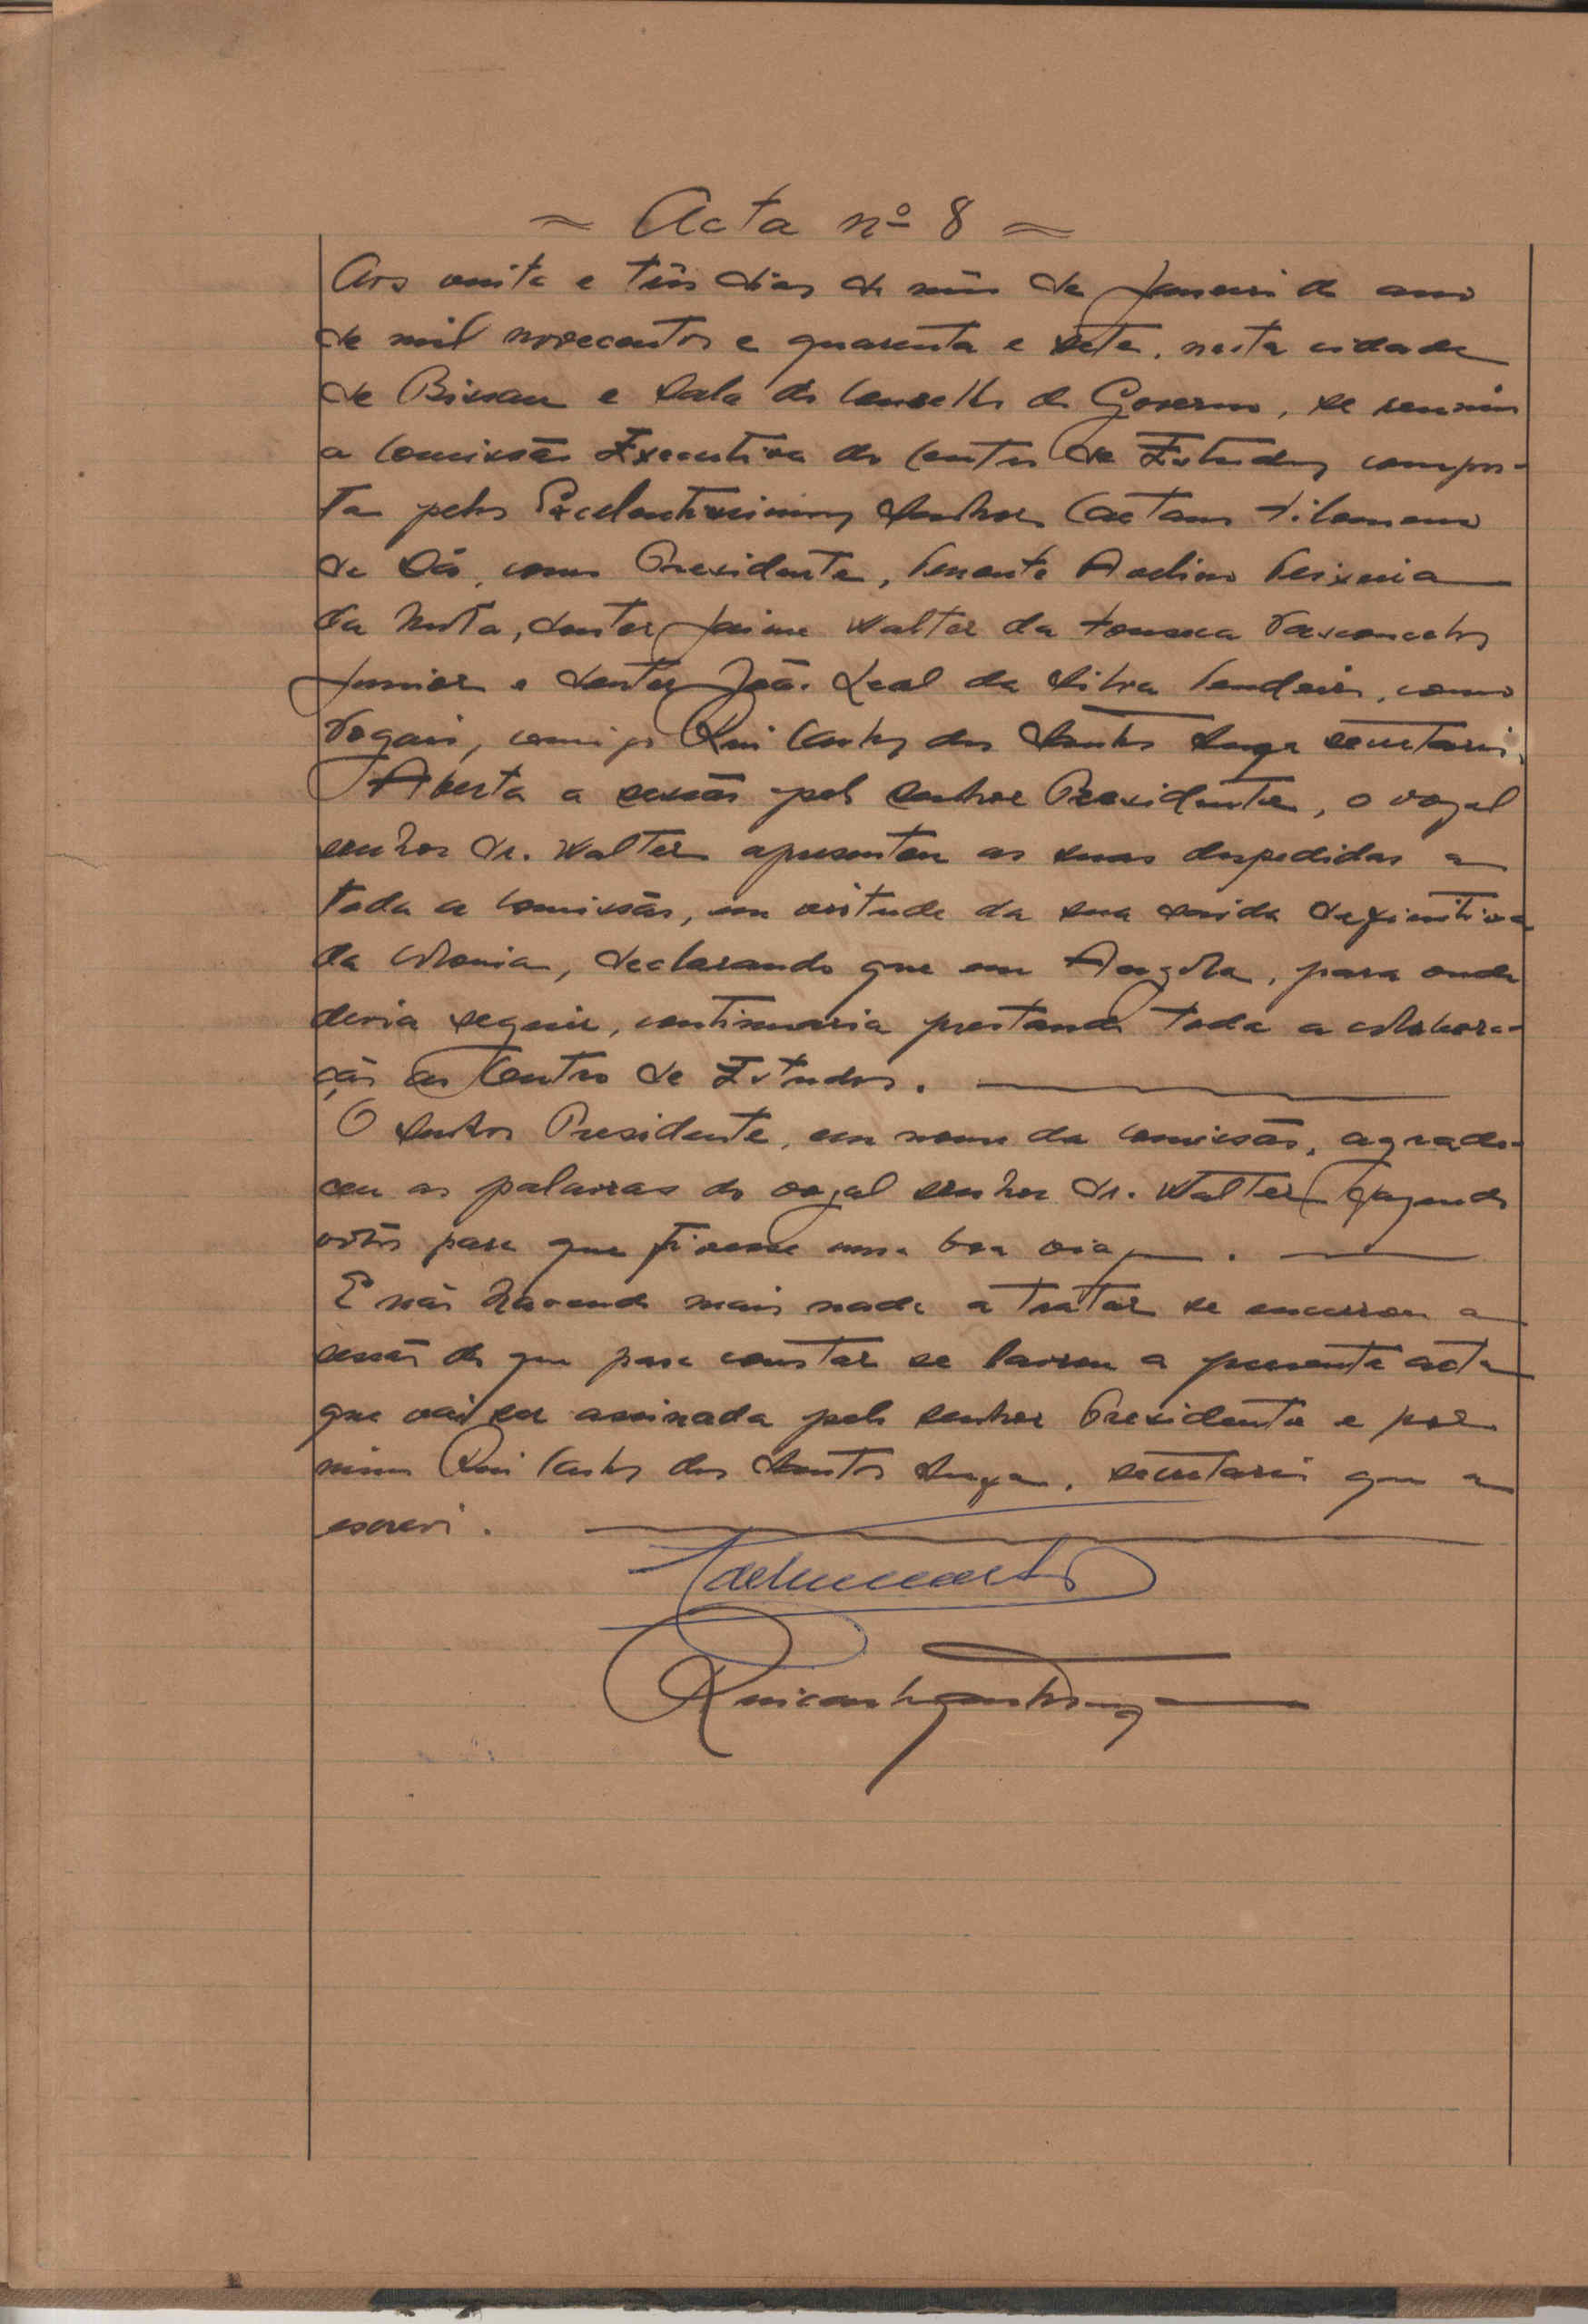 Acta nº 8
Aos vinte e três dias do mês de Janeiro do ano
de mil novecentos e quarenta e sete, nesta cidade
de Bissau e sala do Conselho do Governo, se reuniu
a Comissão Executiva do Centro de Estudos compos-
ta pelos Excelentissimos Senhores Caetano Filomeno
de Sá, como Presidente, Tenente Avelino Teixeira
da Mota, doutor Jaime Walter da Fonseca Vasconcelos
Junior e doutor João Leal da Silva Tendeiro, como
Vogais, comigo Rui Carlos dos Santos secretario.
Aberta a sessão pelo senhor Presidente, o vogal
senhor dr. Walter apresentou as suas despedidas a
toda a Comissão, em virtude da sua saida definitiva
da Colonia, declarando que em Angola, para onde
devia seguir, continuaria prestando toda a colabora-
ção ao Centro de Estudos.
O senhor Presidente, em nome da Comissão, agrade-
ceu as palavras do vogal senhor dr. Walter fazendo
votos para que tivesse uma boa viagem.
E não havendo mais nada a tratar se encerrou a
sessão do que para constar se lavrou a presente acta
que vai ser assinada pelo senhor Presidente e por
mim Rui Carlos dos Santos secretario que a
escrevi.